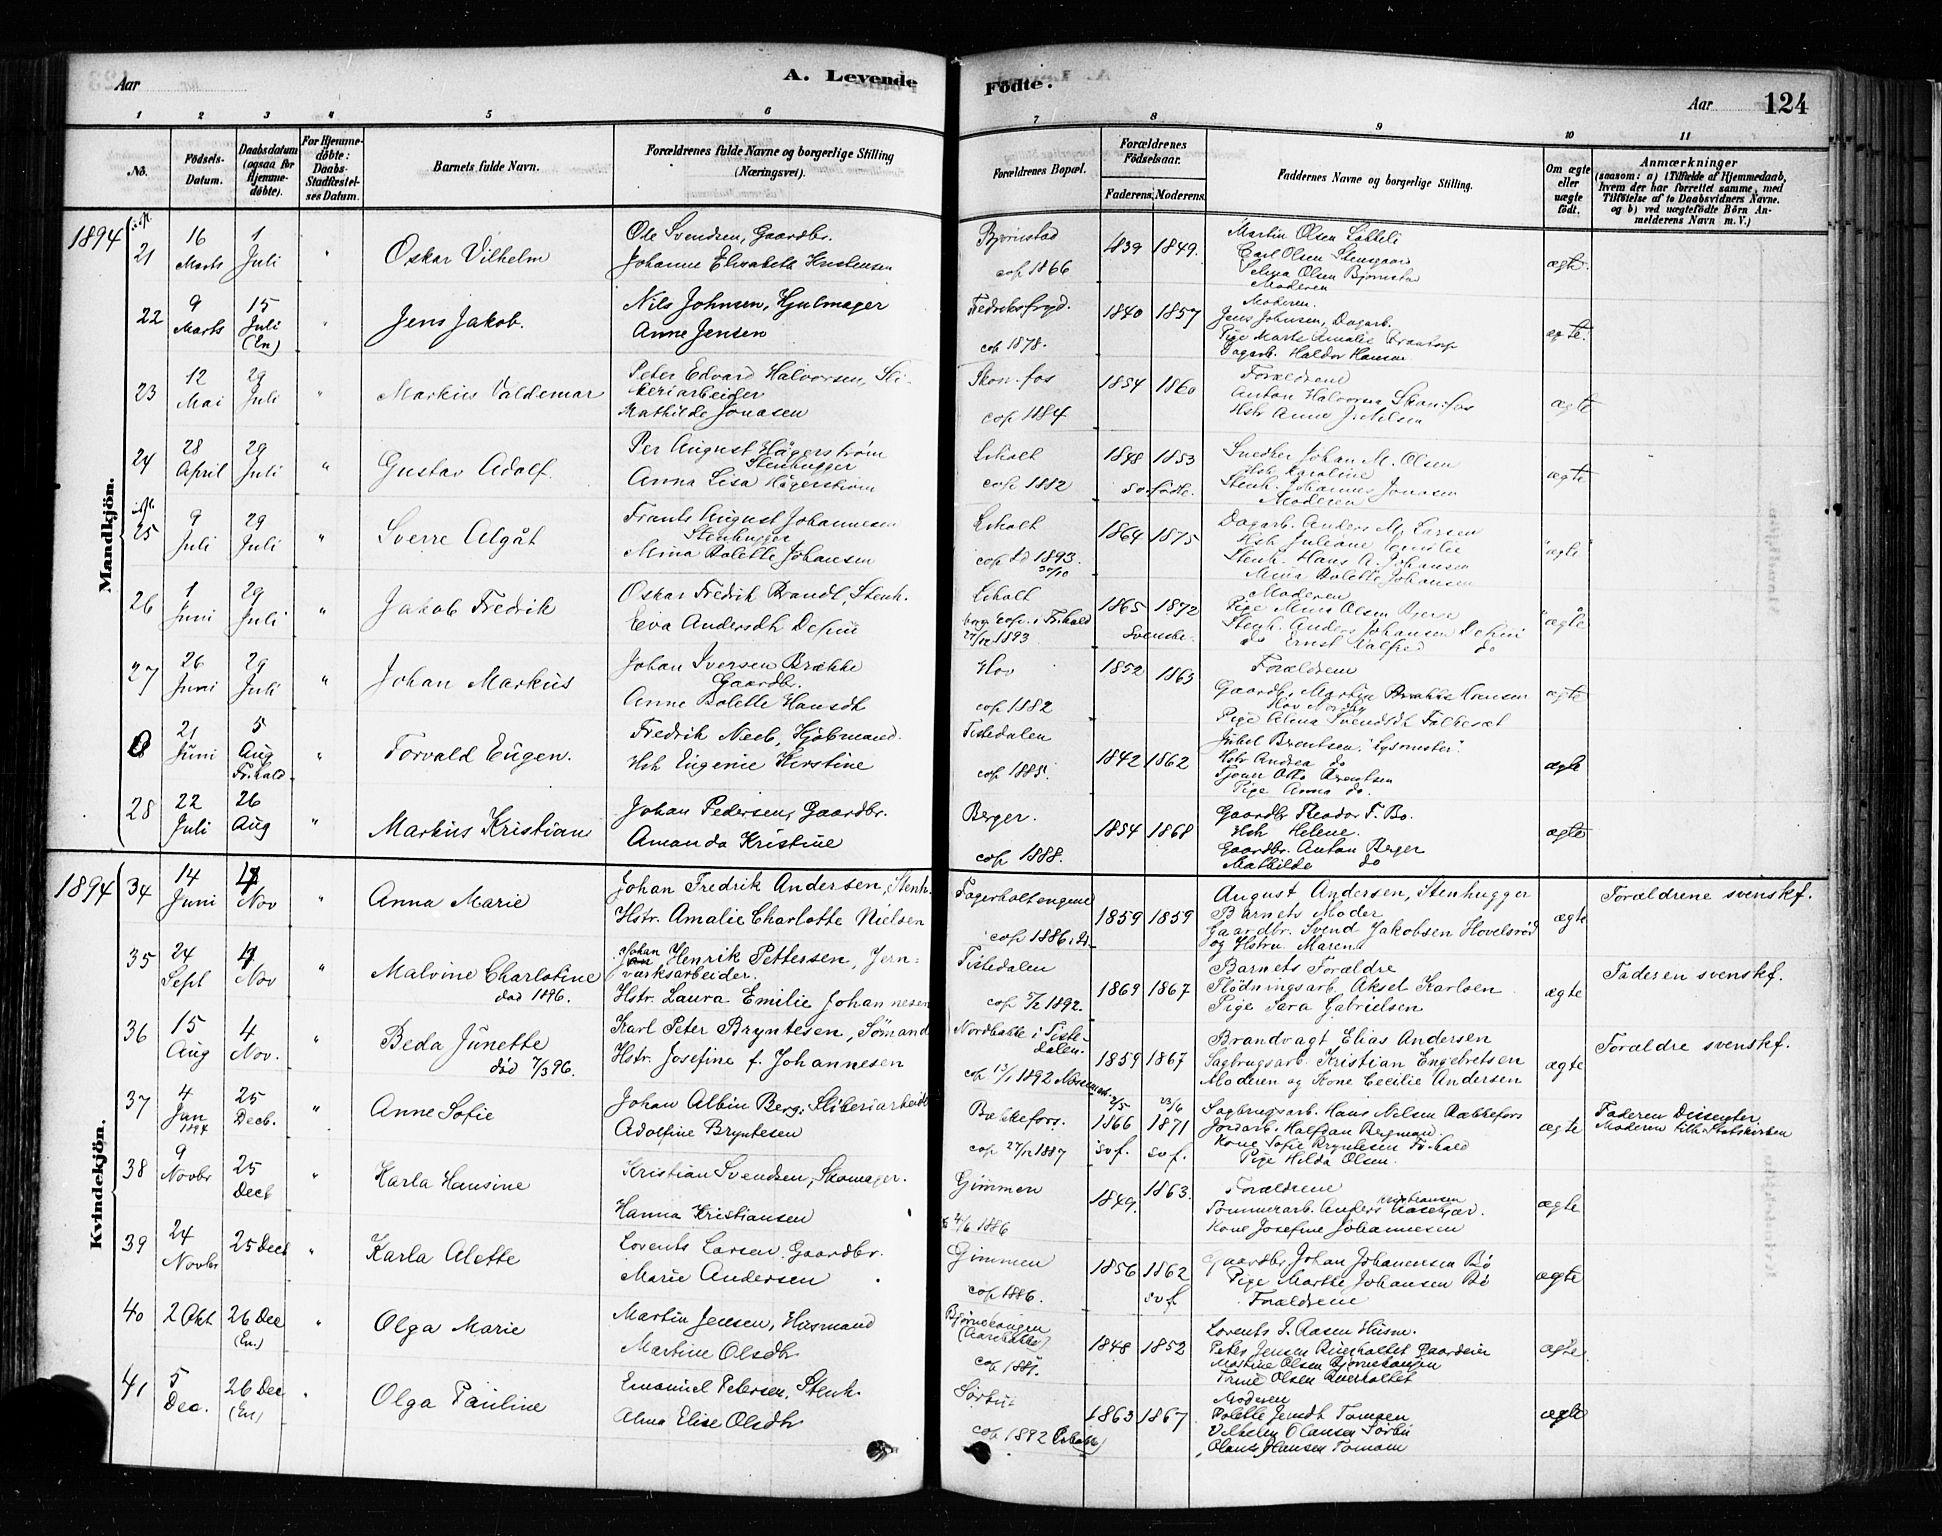 Aar
A. Levende
Fødte.
Aar 124
1 2 3 4 5 6 7 8 9 10 11
No.
Fødsels-Datum.
Daabsdatum (ogsaa for Hjemmedøbte).
For Hjemmedøbte: Daabs-Stadfæstelses Datum.
Barnets fulde Navn.
Forældrenes fulde Navne og borgerlige Stilling (Næringsvei).
Forældrenes Bopæl.
Forældrenes Fødselsaar.
Faderens. Moderens.
Faddernes Navne og borgerlige Stilling.
Om ægte eller uægte født.
Anmærkninger
(saasom: a) i Tilfælde af Hjemmedaab,
hvem der har forrettet samme, med
Tilføielse af to Daabsvidners Navne.
og b) ved uægtefødte Børn Anmelderens Navn m. V.)
Mandkjøn.
1894
21 16 Marts 1 Juli " Oskar Vilhelm
Ole Svendsen, Gaardbr.
Johanne Elisabeth Kristensen
Bjørnstad
cop 1866
1839 1849.
Martin Olsen
Carl Olsen Stensgaar
Olsen Bjørnstad
Moderen
ægte.
22 9 Marts 15 Juli (En) " Jens Jakob.
Nils Johnsen, Hjulmager
Anne Jensen
Fredriksfryd.
cop 1878.
1840 1857
Moderen.
Jens Johnsen, Dagarb.
Pige Marte Amalie
Dagarb. Haldor Hansen
ægte.
23 12 Mai 29 Juli " Markus Valdemar
Peter Edvard Halvorsen, Sliberiarbeider
Mathilde Jonasen
Skonfos
cop 1884
1854 1860
Forældrene
Anton Halvorsen Skonfos
Hstr Anne J. Nilsen
ægte
24 28 April 29 Juli " Gustav Adolf.
Per August Hägerstrøm
Stenhugger
Anna Lisa Hägerstrøm
Liholt
cop 1882
1848 1853
sv. fødte.
Snedker Johan M. Olsen
Hstr Karoline
Stenh. Johannes Jonasen
Moderen
ægte
25 9 Juli 29 Juli " Sverre Algåt
Frants August Johannesen
Stenhugger
Mina Bolette Johansen
Liholt
cop Id 1893. 30/10
1864 1875
Dagarb. Anders M. Larsen
Hstr Juliane Emilie
Stenh. Hans A. Johansen
Mina Bolette Johansen
"ægte"
26 1 Juni 29 Juli " Jakob Fredrik
Oskar Fredrik Brandt, Stenh.
Eva Andersdh Depui
Liholt
borg. cop. i Fr.hald
27/12 1893
1865 1872
Svenske.
Moderen
Pige Mina Olsen Berre
Stenh. Anders Johansen Depui
do Ernst Valfred do
"ægte
27 26 Juni 29 Juli " Johan Markus
Johan Iversen Brække
Gaardb.
Anne Bolette Hansdh
Hov
cop 1882
1852 1863
Forældrene
Gaardbr. Martin Hansen
Hov Nordby
Pige Alma Svendsdt Folkesæt
ægte
21 Juni 5 Aug Fr.hald " Torvald Eugen.
Fredrik Neeb, Kjøbmand.
Hstr Eugenie Kirstine
Tistedalen
cop 1885.
1842 1862
Juhel Brentsen. "Lysmester".
Hstr Andrea do
Otto Brentsen
Pige Anna do.
ægte
28 22 Juli 26 Aug " Markus Kristian
Johan Pedersen, Gaardbr.
Amanda Kristine
Berger.
cop 1888.
1854 1868
Gaardbr Theodor F. Bo.
Hstr Helene.
Gaardbr. Anton Berger
Mathilde do
ægte
Kvindekjøn.
1894
34 14 Juni Nov " Anna Marie
Johan Fredrik Andersen, Stenh.
Hstr. Amalie Charlotte Nielsen
Fagerholtengene
cop 1886 i Id
1859 1859
August Andersen, Stenhugger
Barnets Moder
Gaardbr. Svend Jakobsen Hovelsrød
og Hstru Maren
ægte
Forældrene svenskf.
35 24 Sept 4 Nov " Malvine Charlotine
død 1896.
Johan Henrik Pettersen, Jernværksarbeider.
Hstr. Laura Emilie Johannesen
Tistedalen
cop 5/2 1892.
1869 1867
Barnets Forældre
Flødningsarb. Aksel Karlsen
Pige Sara Gabrielsen
ægte
Faderen svenskf.
36 15 Aug 4 Nov. " Beda Junette
død 7/3 96.
Karl Peter Bryntesen, Sømand
Hstr. Josefine f. Johannesen
Nordbakke i Tistedalen.
cop 13/1 1892
1859 1867
Brandvagt Elias Andersen
Sagbrugsarb. Kristian Engebretsen
Moderen og Kone Cecilie Andersen
ægte
Forældre svenskf.
37 4 Jan 1894 25 Decb. " Anne Sofie
Johan Albin Berg, Sliberiarbeider
Adolfine Bryntesen
Bækkefors.
cop 27/12 1887
2/5 1866 sv f. 23/6 1871 sv f.
Sagbrugsarb. Hans Nilsen Bækkefors
Jordarb. Halfdan Bergman.
Kone Sofie Bryntesen Fr.hald
Pige Hilda Olsen.
ægte
Faderen Dissenter
Moderen tilh. Statskirken
38 9 Novbr 25 Dect " Karla Hansine
Kristian Svendsen, Skomager.
Hanna Kristiansen
Gimmen
4/6 1886
1849. 1863.
Forældrene
Tømmerarb. Anders Kristiansen
Kone Josefine Johannesen
ægte
39 24 Novbr 25 Dect " Karla Alette
Lorents Larsen. Gaardbr.
Marie Andersen
Gimmen
cop 1886.
1856 1862 sv f.
Gaardbr. Johan Johannesen Bø
Pige Marthe Johansen Bø
Forældrene
ægte
40 2 Okt 26 Dec (En.) " Olga Marie
Martin Jensen, Husmand
Martine Olsdtr
Bjørnehaugen
cop 1885.
1848 1852
Lorents J. Aasen Husm.
Peter Jensen Gaardeier
Martine Olsen Bjørnehaugen
Trine Olsen
ægte
41 5 Dec. 26 Dec (En) " Olga Pauline
Emanuel Petersen, Stenh.
Alma Elise Olsdtr
Sørbu
cop 1892
1863 1867
Moderen
Bolette Jensdt Tomoen
Vilhelm Olausen Sørbu
Olaus Hansen Tomoen
ægte